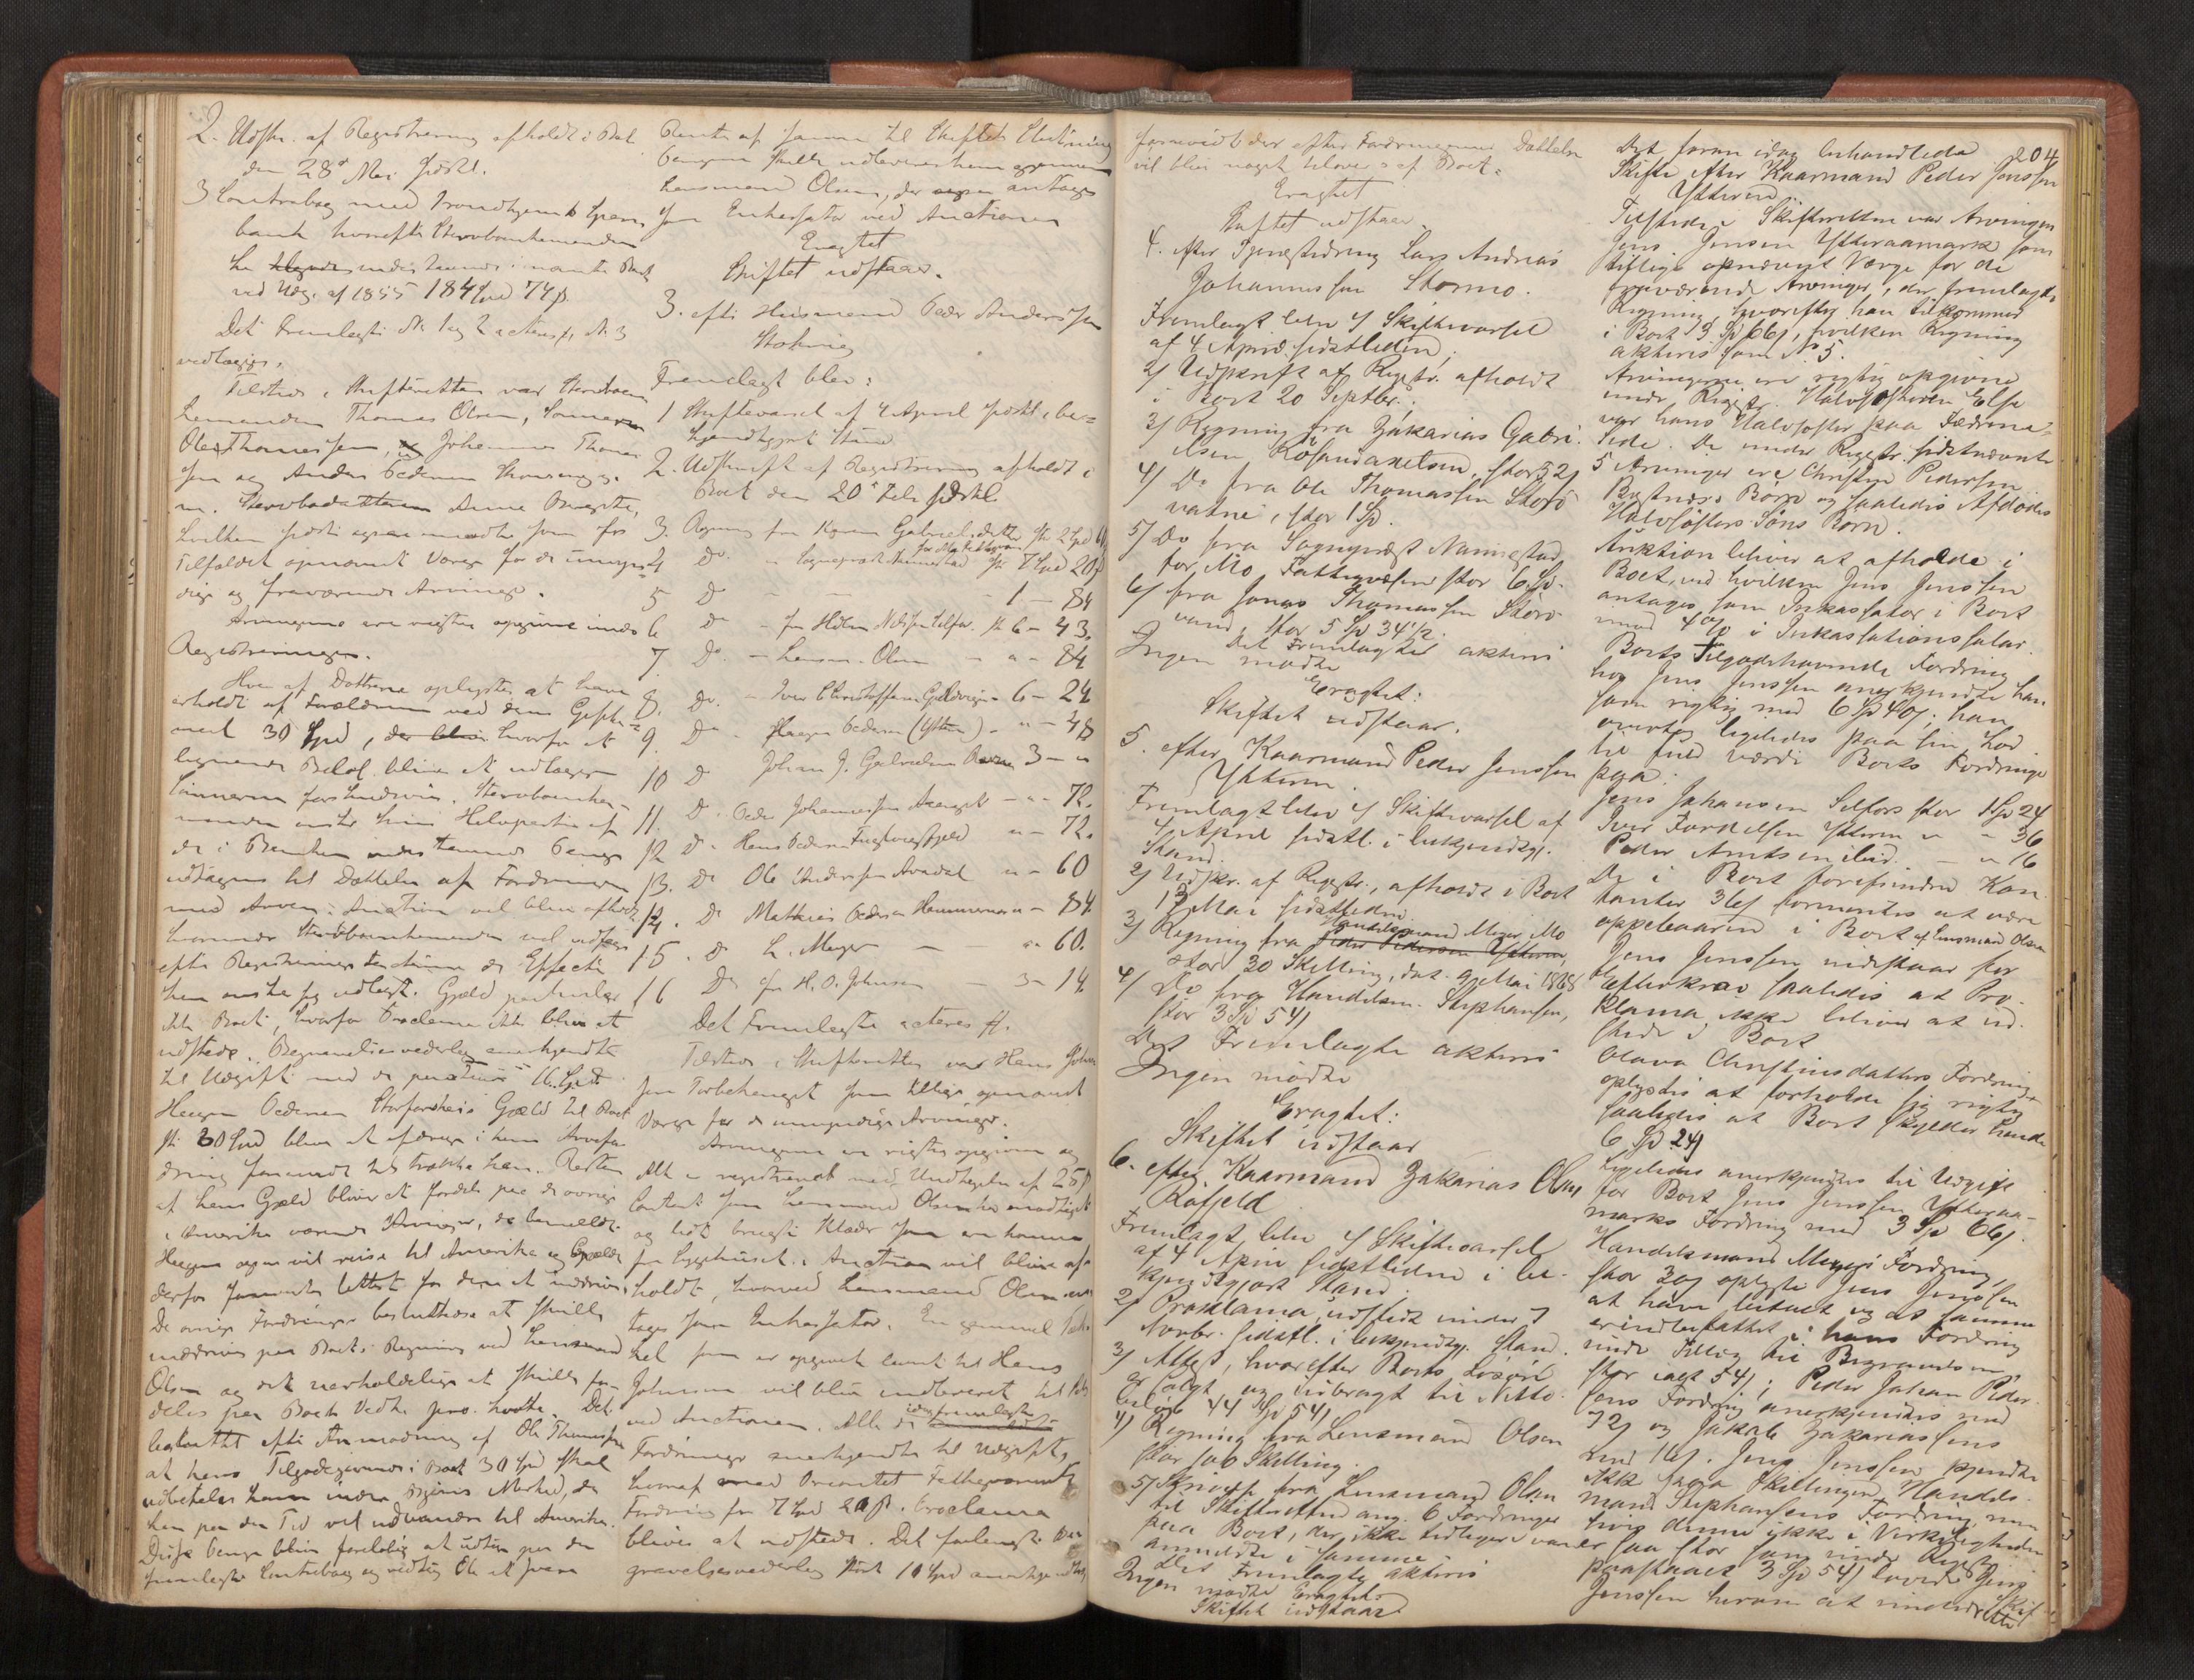 2. Udskr. af Registrering afholdt i Boet
den 28de Mai sidstl.
3 Contrabog med Trondhjems Spare
bank hvorefter Stervboenkemanden
har indestaaende i nævnte Bank
ved Udg. af 1855 184 Spd 74 β.
Det Fremlagte No 1 og 2 acteres, No 3
vedlægges.
Tilstede i Skifteretten var Stervboen
kemanden Thomas Olsen, Sønnerne
Ole Thomassen, Johannes Thomas
sen og Anders Pedersen
m. Stervbodatteren Anne Birgitte,
hvilken sidste ogsaa mødte som for
Tilfældet opnævnt Værge for de umyn
dige og fraværende Arvinger.
Arvingerne ere rigtig opgivne under
Registreringen.
Hver af Døttrene oplystes at have
erholdt af Forældrene ved deres Gifte
med 30 Spd, hvorfor et
lignende Beløb bliver at udlægge
Sønnerne forlodsviis. Stervboenke
manden ønsker sin Halvpart af
de i Banken indestaaende Penge
udtagne til Dættelse af Fordringer
med Arven. Auction vil blive afholdt
hvorunder Stervboenkemanden vil udsøge
efter Registreringstaxterne de Effecter
han ønsker sig udlagt. Gjæld
ikke Boet, hvorfor Proclama ikke bliver at
udstede. Begravelsesvederlag anerkjendte
til Udgift med 16 Spd.
Haagen Pedersen Storforsheis Gjæld til Boet
st. 30 Spd bliver at afdrage i hans Arvefor
dring saavidt til trække kan. Resten
af hans Gjæld bliver at fordele paa de øvrige
i Amerika værende Arvinger, da bemeldte
Haagen ogsaa vil reise til Amerika og Gjælden
derfor formentes lettest for dem at inddrive.
De øvrige Fordringer besluttedes at skulle
inddrives paa Boets Regning ved Lensmand
Olsen og det uerholdelige at skulle for
deles paa Boets Vedk. pro. quota. Det
besluttet efter Anmodning af Ole Thomassen
at hans Tilgodehavende i Boet 30 Spd skal
udbetales ham inden Marked, da
han paa den Tid vil udvandre til Amerika.
Disse Penge blive foreløbig at udtage paa den
fremlagte Contrabog og vedtog Ole at svare
Rente af samme til Skiftets Slutning
Pengene skulle udleveres ham gjennem
Lensmand Olsen, der ogsaa antages
som Inkassator ved Auctionen
Eragtet
Skiftet udstaar.
3. efter Huusmand Peder Andersen
Fremlagt blev:
1 Skiftevarsel af 4 April sidstl. i be-
kjendtgjort Stand
2. Udskrift af Registrering afholdt i
Boet den 20de Feb. sidstl.
3. Regning fra Karen Gabrielsdatter st. 2 Spd
4 Do. - Sogneprest Nannestad for Mo Fattigvæsen st. 7 Spd 20 β
5 Do - - - 1 - 84
6 Do - fra Hdlm Selfors st. 6 - 43.
7. Do. - Lensm. Olsen - " - 84
8. Do. - Iver Christoffersen - 6 - 24
9 Do - Haagen Pedersen (Ytteren) - " - 48
10 Do Johan J. Gabrielsen 3 - "
11. Do. Peder Johannessen - " - 72.
12 Do. Hans Pedersen " - 72.
13. Do Ole Andersen " - 60
14. Do Mathias Pedersen " - 84.
15. Do L. Meyer - " - 60.
16 Do fra H. O. Johnsen - 3 - 14.
Det Fremlagte acteres ff.
Tilstede i Skifteretten var Hans Johan
sen som tillige opnævnt
Værge for de umyndige Arvinger.
Arvingerne ere rigtig opgivne og
Alt er registreret med Undtagelse af 25 β
Contant som Lensmand Olsen har modtaget
og lidt brugte Klæder som ere komne
fra Sygehuset. Auction vil blive af-
holdt, hvorved Lensmand Olsen an
tages som Inkassator. En gammel
som er opgivet laant til Hans
Johnsen vil blive indleveret til
ved Auctionen. Alle de idag fremlagte
Fordringer anerkjendtes til Udgift,
hvoraf med Prioritet Fattigvæsenets
Fordring fra 7 Spd 20 β. Proclama
bliver at udstede. Det forlangte Be
gravelsesvederlag stort 10 Spd
forsaavidt der efter Fordringernes Dækkelse
vil blive noget tilovers af Boet.
Eragtet
Skiftet udstaar
4. efter Lars Andreas
Johannessen Stormo.
Fremlagt blev 1/ Skiftevarsel
af 4 April sidstleden,
2/ Udskrift af Registr. afholdt
i Boet 20 Septbr.
3/ Regning fra Zakarias Gabri-
elsen
4/ Do fra Ole Thomassen Stor
vatne, stor 1 Sp.
5/ Do fra Sogneprest Nannestad
for Mo Fattigvæsen stor 6 Sp.
6/ fra Jonas Thomassen Stor
vand, stor 5 Sp 34 1/2.
Det Fremlagte akteres
Ingen mødte
Eragtet:
Skiftet udstaar.
5. efter Kaarmand Peder Jenssen
Ytteren.
Fremlagt blev 1/ Skiftevarsel af
4 April sidstl. i bekjendtgj.
Stand.
2/ Udskr. af Registr., afholdt i Boet
13 Mai sidstleden.
3/ Regning fra Handelsmand Meyer, Mo
stor 30 Skilling, dat. 9 Mai 1868
4/ Do fra Handelsm. Stephansen,
stor 3 Sp 54/
Det Fremlagte akteres
Ingen mødte
Eragtet:
Skiftet udstaar
6. efter Kaarmand Zakarias Olsen
Røfjeld
Fremlagt blev 1/ Skiftevarsel
af 4 April sidstleden i be-
kjendtgjort Stand.
2/ Proklama, udstedt under 7
Novbr. sidstl. i bekjendtgj. Stand.
3/ Attest, hvorefter Boets Løsøre
er solgt og udbragt til Netto-
beløb 44 Sp 54/
4/ Regning fra Lensmand Olsen
stor 106 Skilling.
5/ Skrivelse fra Lensmand Olsen
til Skifteretten ang. 6 Fordringer
paa Boet, der ikke tidligere vare
anmeldte i samme
Det Fremlagte akteres
Ingen mødte Eragtet:
Skiftet udstaar
Det foran idag behandlede 204
Skifte efter Kaarmand Peder Jenssen
Ytteren
Tilstede i Skifteretten var Arvingen
Jens Jensen Ytteraamark som
tillige opnævnt Værge for de
fraværende Arvinger, der fremlagde
Regning, hvorefter han tilkommer
i Boet 3 Sp 66/, hvilken Regning
akteres som No 5.
Arvingerne ere rigtig opgivne
under Registr. Halvsøsteren Else
var hans Halvsøster paa Fædrene-
Side. De under Registr. sidstnævnte
5 Arvinger ere Christen Pedersen
Børn og saaledes Afdødes
Halvsøsters Søns Børn.
Auktion bliver at afholde i
Boet, ved hvilken Jens Jenssen
antages som Inkassator i Boet
mod 4 % i Inkassationssalær.
Boets Tilgodehavende Fordring
hos Jens Jenssen anerkjendte han
som rigtig med 6 Sp 40/; han
overtog ligeledes paa sin Lod
til fuld Værdi Boets Fordringer
paa:
Jens Johansen Selfors stor 1 Sp 24
Iver Ytteren " " 36
Peder - " 16
De i Boet forefundne Kon
tanter 36/ formentes at være
oppebaaren i Boet af Lensmand Olsen
Jens Jenssen indestaar for
Efterkrav saaledes at Pro-
klama ikke bliver at ud-
stede i Boet
Olava Christinsdatters Fordring
oplystes at forholde sig rigtig
saaledes at Boet skylder hende
6 Sp 24/
Ligeledes anerkjendtes til Udgift
for Boet Jens Jenssen Ytteraa-
marks Fordring med 3 Sp 66/.
Handelsmand Meyers Fordring,
stor 30/ oplyste Jens Jenssen
at have betalt og at samme
er indbefattet i hans Fordring
under Tillæg til Begravelsen,
stor ialt 54/; Peder Johan Peder
sens Fordring anerkjendtes med
72/ og Jakob Zakariassens
med 16/. Jens Jenssen kjendte
ikke Handels-
mand Stephansens Fordring, men
hvis denne ikke i Virkeligheden
er saa stor som under Registr.
paastaaet 3 Sp 54/ lovede Jens
Jenssen herom at underrette Skif